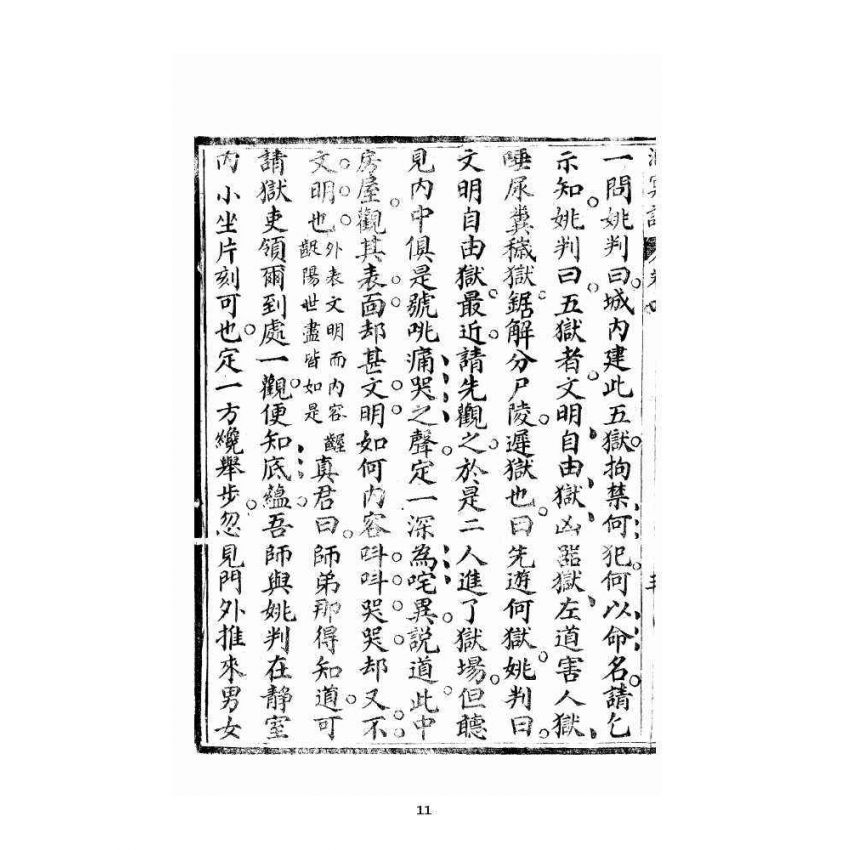 一問姚判曰城內建此五獄拘禁何犯何以命名請乞
示知姚判曰五獄者文明自由獄凶器獄左道害人獄
唾尿糞穢獄鋸解分尸陵遲獄也曰先遊何獄姚判曰
文明自由獄最近請先觀之於是二人進了獄場但聽
見內中俱是號咷痛哭之聲定一深為咤異説道此中
房屋觀其表面却甚文明如何內容呌呌哭哭却又不
文明也外表文明而內容齷齪陽世盡皆如是真君曰師弟那得知道可
請獄吏領爾到處一觀便知底蘊吾師與姚判在靜室
內小坐片刻可也定一方纔舉步忽見門外推來男女
11